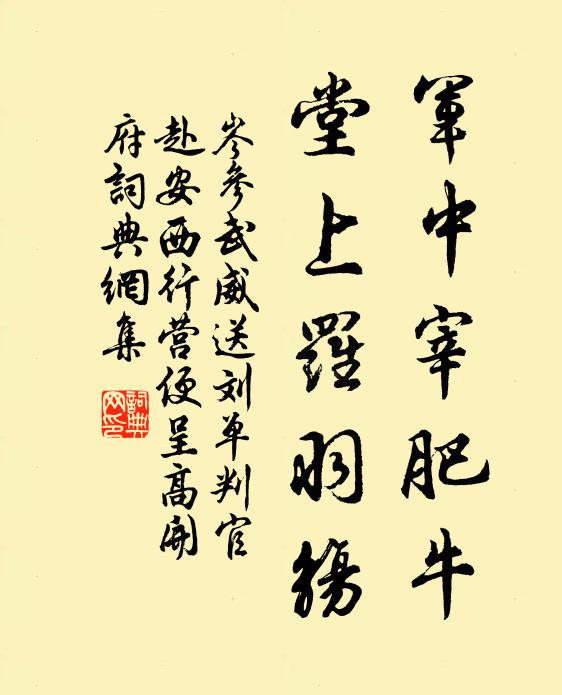 軍中宰肥牛
堂上羅羽觴
岑參武威送刘单判官
赴安西行营便呈高開
府詞典網集
詞典
网印